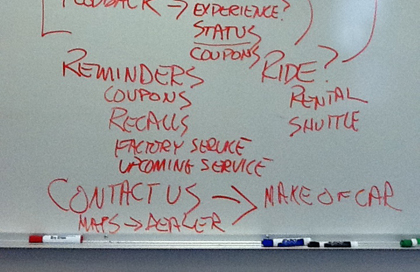 FEEDBACK → EXPERIENCE?
STATUS
COUPONS
REMINDERS RIDE?
COUPONS RENTAL
RECALLS SHUTTLE
FACTORY SERVICE
UPCOMING SERVICE
CONTACT US → MAKE OF CAR
MAPS → DEALER